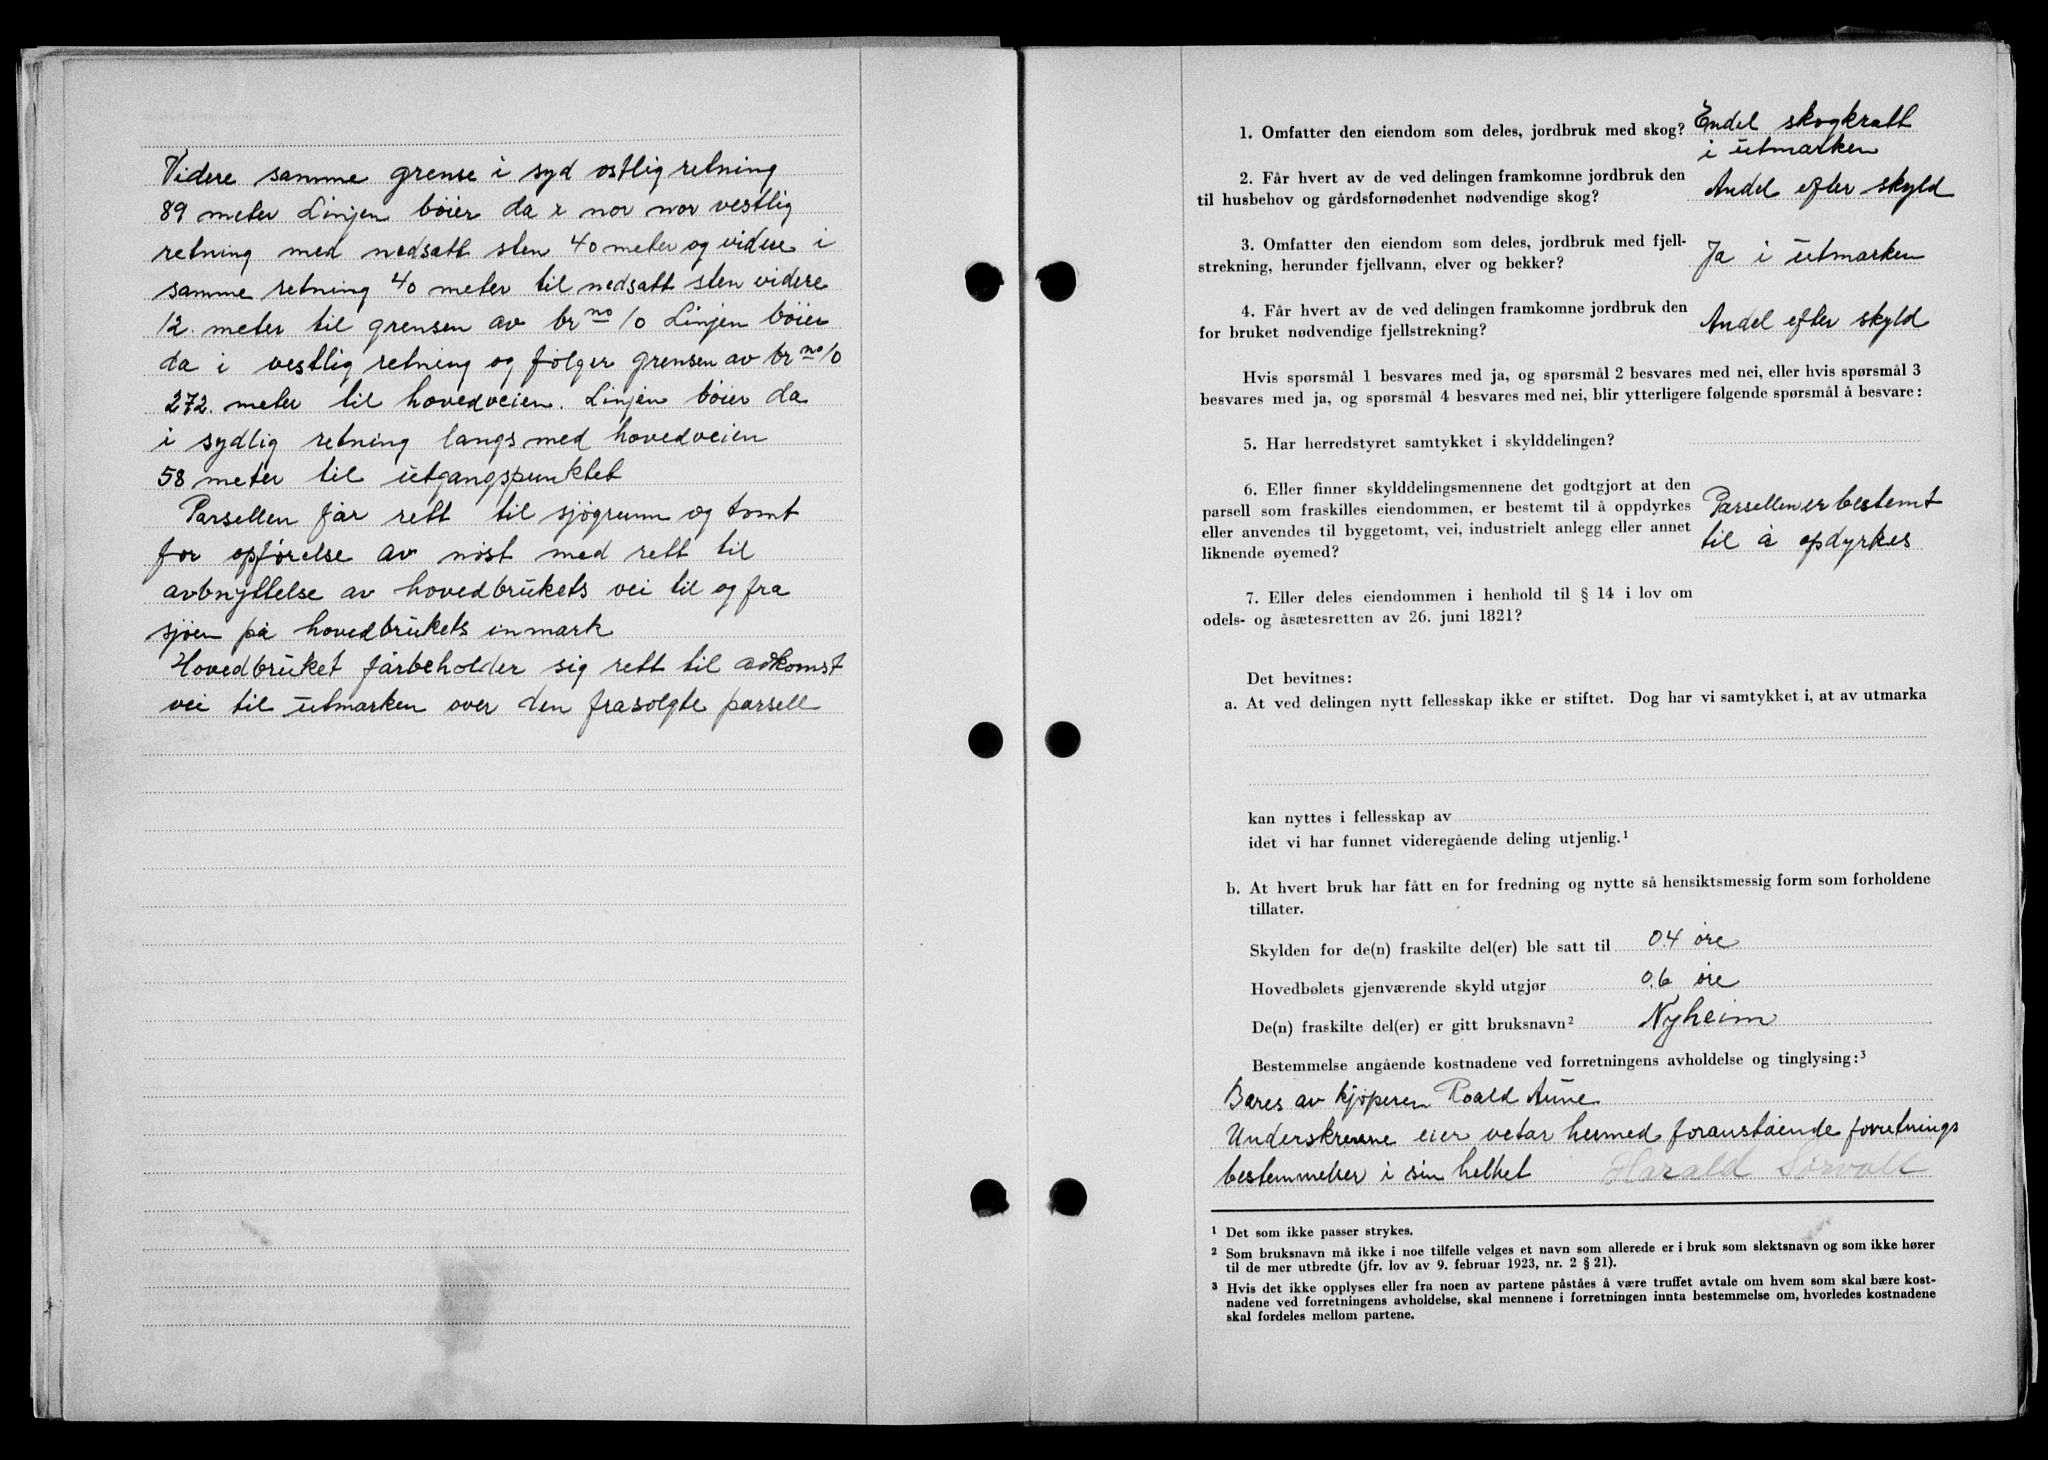 Videre samme grense i syd ostlig retning
89 meter Linjen bøier da i nor nor vestlig
retning med nedsatt sten 40 meter og videre i
samme retning 40 meter til nedsatt sten videre
12. meter til grensen av br no 10 Linjen bøier
da i vestlig retning og følger grensen av br no 10
272. meter til hovedveien. Linjen bøier da
i sydlig retning langs med hovedveien
58 meter til utgangspunktet
Parsellen får rett til sjøgrunn og tomt
for opførelse av nøst med rett til
avbnyttelse av hovedbrukets vei til og fra
sjøen på hovedbrukets inmark
Hovedbruket førbeholder sig rett til adkomst
vei til utmarken over den frasolgte parsell
1. Omfatter den eiendom som deles, jordbruk med skog? Endel skogkratt
i utmarken
2. Får hvert av de ved delingen framkomne jordbruk den
til husbehov og gårdsfornødenhet nødvendige skog? Andel efter skyld
3. Omfatter den eiendom som deles, jordbruk med fjell-
strekning, herunder fjellvann, elver og bekker? Ja i utmarken
4. Får hvert av de ved delingen framkomne jordbruk den
for bruket nødvendige fjellstrekning? Andel efter skyld
Hvis spørsmål 1 besvares med ja, og spørsmål 2 besvares med nei, eller hvis spørsmål 3
besvares med ja, og spørsmål 4 besvares med nei, blir ytterligere følgende spørsmål å besvare:
5. Har herredstyret samtykket i skylddelingen?
6. Eller finner skylddelingsmennene det godtgjort at den
parsell som fraskilles eiendommen, er bestemt til å oppdyrkes Parsellen er bestemt
eller anvendes til byggetomt, vei, industrielt anlegg eller annet
liknende øyemed? til å opdyrkes
7. Eller deles eiendommen i henhold til § 14 i lov om
odels- og åsætesretten av 26. juni 1821?
Det bevitnes:
a. At ved delingen nytt fellesskap ikke er stiftet. Dog har vi samtykket i, at av utmarka
kan nyttes i fellesskap av
idet vi har funnet videregående deling utjenlig.1
b. At hvert bruk har fått en for fredning og nytte så hensiktsmessig form som forholdene
tillater.
Skylden for de(n) fraskilte del(er) ble satt til 04 øre
Hovedbølets gjenværende skyld utgjør 0.6 øre
De(n) fraskilte del(er) er gitt bruksnavn2 Nyheim
Bestemmelse angående kostnadene ved forretningens avholdelse og tinglysing:3
Bæres av kjøperen Roald Aune
Underskrevne eier vetar hermed foranstående forretnings
bestemmelser i sin helhet Harald Sørvoll
1 Det som ikke passer strykes.
2 Som bruksnavn må ikke i noe tilfelle velges et navn som allerede er i bruk som slektsnavn og som ikke hører
til de mer utbredte (jfr. lov av 9. februar 1923, nr. 2 § 21).
3 Hvis det ikke opplyses eller fra noen av partene påståes å være truffet avtale om hvem som skal bære kost-
nadene ved forretningens avholdelse, skal mennene i forretningen innta bestemmelse om, hvorledes kostnadene
skal fordeles mellom partene.